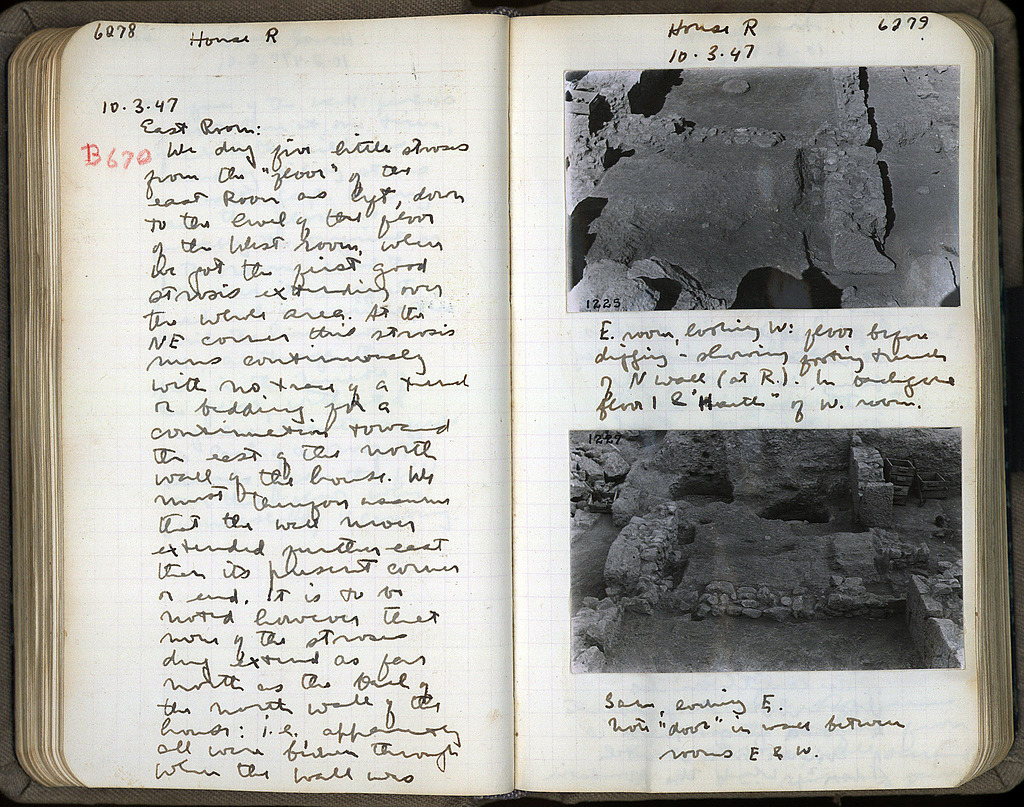 6278
House R
10.3.47
East Room:
B670
We dug five little stroses
from the "floor" of the
east Room as left, down
to the level of the floor
of the West Room, when
we got the first good
strosis extending over
the whole area. At the
NE corner this strosis
runs continuously
with no trace of a trench
or bedding for a
continuation toward
the east of the north
wall of the house. We
must therefore assume
that the wall never
extended further east
than its present corner
or end. It is to be
noted however that
none of the stroses
dug extend as far
north as the back of
the north wall of the
house: i.e. apparently
all were broken through
when the wall was
House R
6279
10.3.47
1225
E. room, looking W: floor before
digging - showing footing trench
of N wall (at R.). In background
floor 1 & "Hearth" of W. room.
1227
Same, looking E.
Note "door" in wall between
rooms E & W.